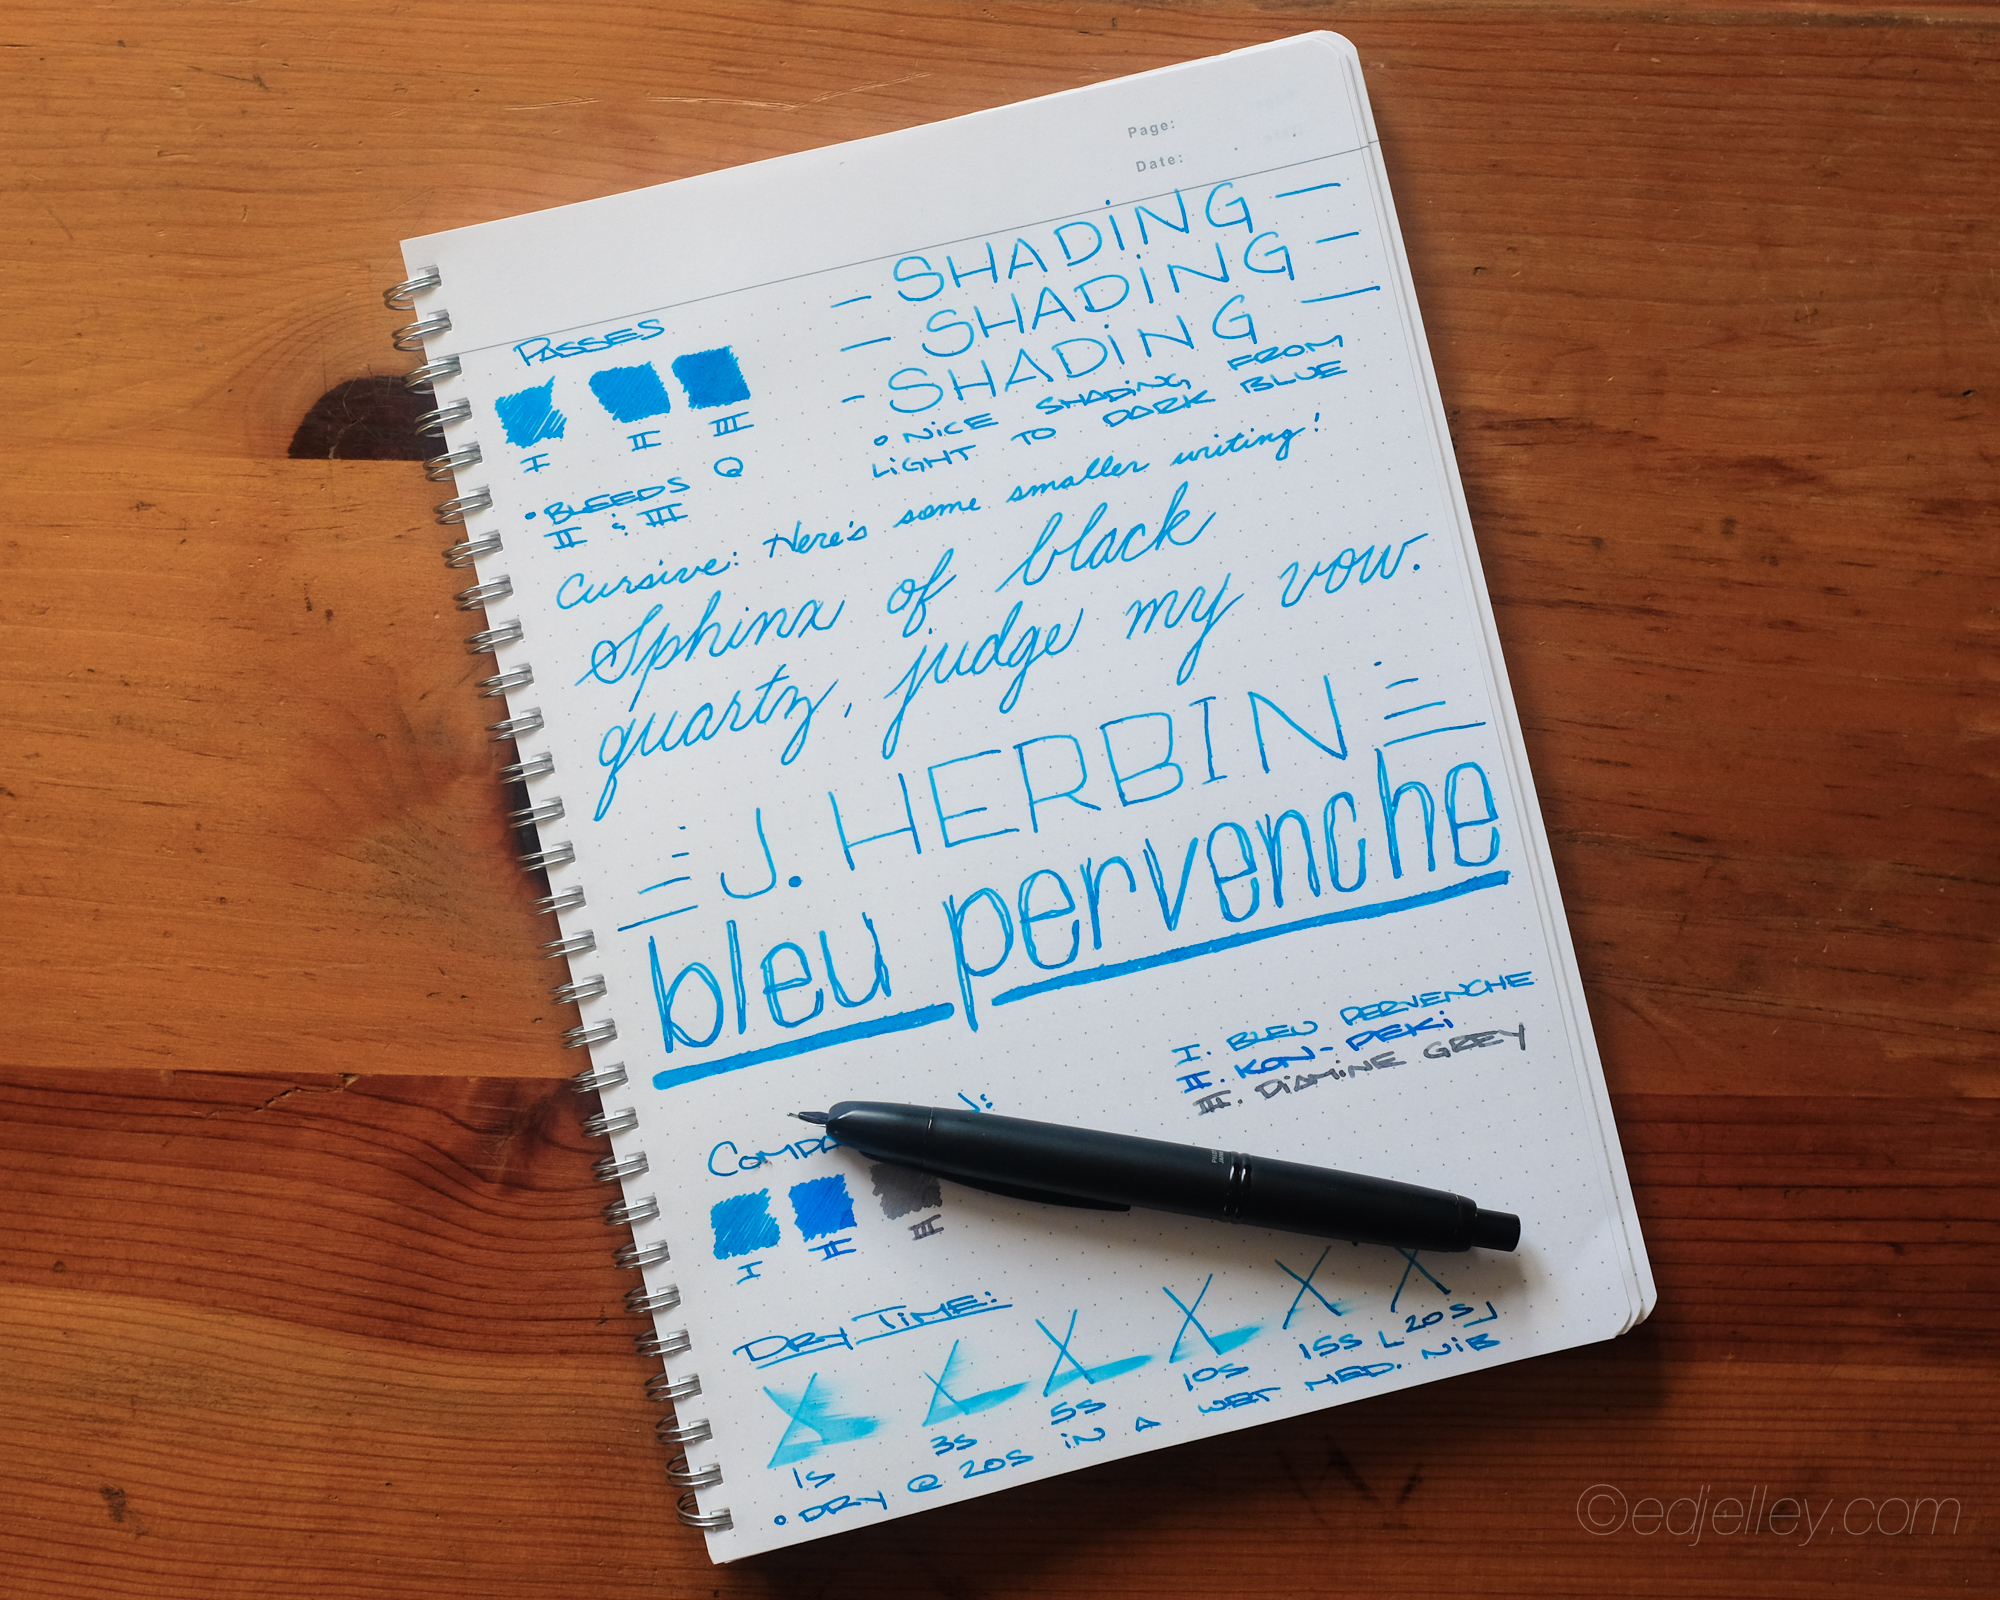 Page:
Date:
- SHADiNG -
- SHADiNG -
- SHADiNG -
• NiCE SHADiNG FROM
LiGHT TO DARK BLUE
PASSES
I II III
• BLEEDS @
II & III
Cursive: Here's some smaller writing!
Sphinx of black
quartz, judge my vow.
J. HERBIN
bleu pervenche
I. BLEU PERVENCHE
II. KON-PEKi
III. DiAMiNE GREY
I II III
DRY TiME:
1S 3S 5S 10S 15S [20S]
• DRY @ 20S iN A WET MED. NiB
©edjelley.com